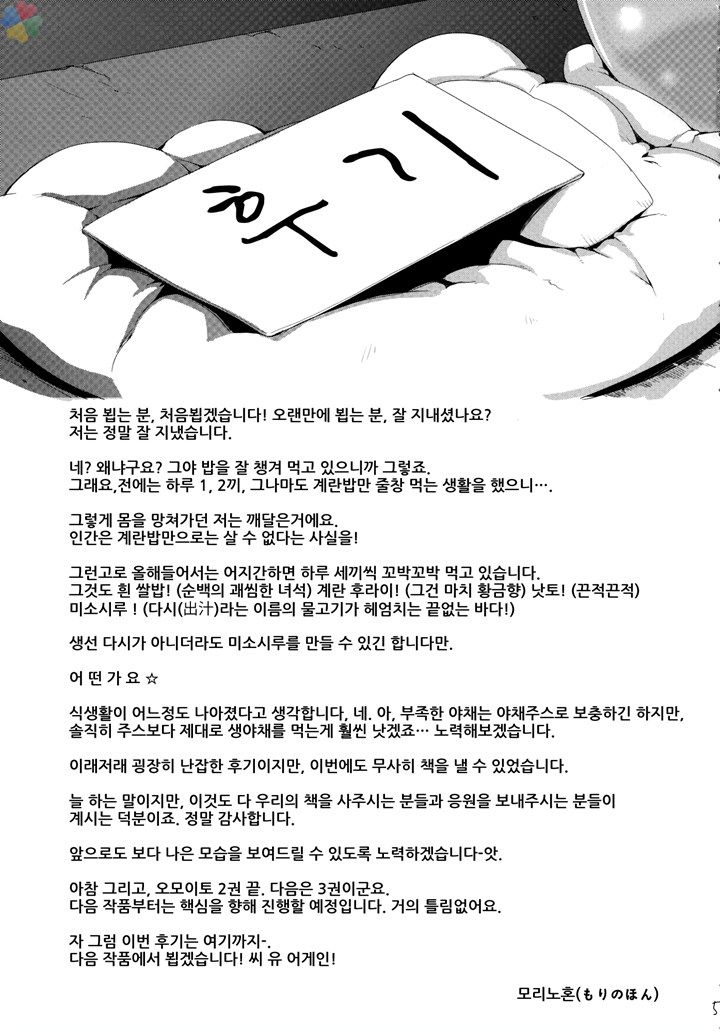 후기
처음 뵙는 분, 처음뵙겠습니다! 오랜만에 뵙는 분, 잘 지내셨나요?
저는 정말 잘 지냈습니다.
네? 왜냐구요? 그야 밥을 잘 챙겨 먹고 있으니까 그렇죠.
그래요,전에는 하루 1, 2끼, 그나마도 계란밥만 줄창 먹는 생활을 했으니….
그렇게 몸을 망쳐가던 저는 깨달은거에요.
인간은 계란밥만으로는 살 수 없다는 사실을!
그런고로 올해들어서는 어지간하면 하루 세끼씩 꼬박꼬박 먹고 있습니다.
그것도 흰 쌀밥! (순백의 괘씸한 녀석) 계란 후라이! (그건 마치 황금향) 낫토! (끈적끈적)
미소시루 ! (다시(出汁)라는 이름의 물고기가 헤엄치는 끝없는 바다!)
생선 다시가 아니더라도 미소시루를 만들 수 있긴 합니다만.
어 떤 가 요 ☆
식생활이 어느정도 나아졌다고 생각합니다, 네. 아, 부족한 야채는 야채주스로 보충하긴 하지만,
솔직히 주스보다 제대로 생야채를 먹는게 훨씬 낫겠죠… 노력해보겠습니다.
이래저래 굉장히 난잡한 후기이지만, 이번에도 무사히 책을 낼 수 있었습니다.
늘 하는 말이지만, 이것도 다 우리의 책을 사주시는 분들과 응원을 보내주시는 분들이
계시는 덕분이죠. 정말 감사합니다.
앞으로도 보다 나은 모습을 보여드릴 수 있도록 노력하겠습니다-앗.
아참 그리고, 오모이토 2권 끝. 다음은 3권이군요.
다음 작품부터는 핵심을 향해 진행할 예정입니다. 거의 틀림없어요.
자 그럼 이번 후기는 여기까지-.
다음 작품에서 뵙겠습니다! 씨 유 어게인!
모리노혼(もりのほん)